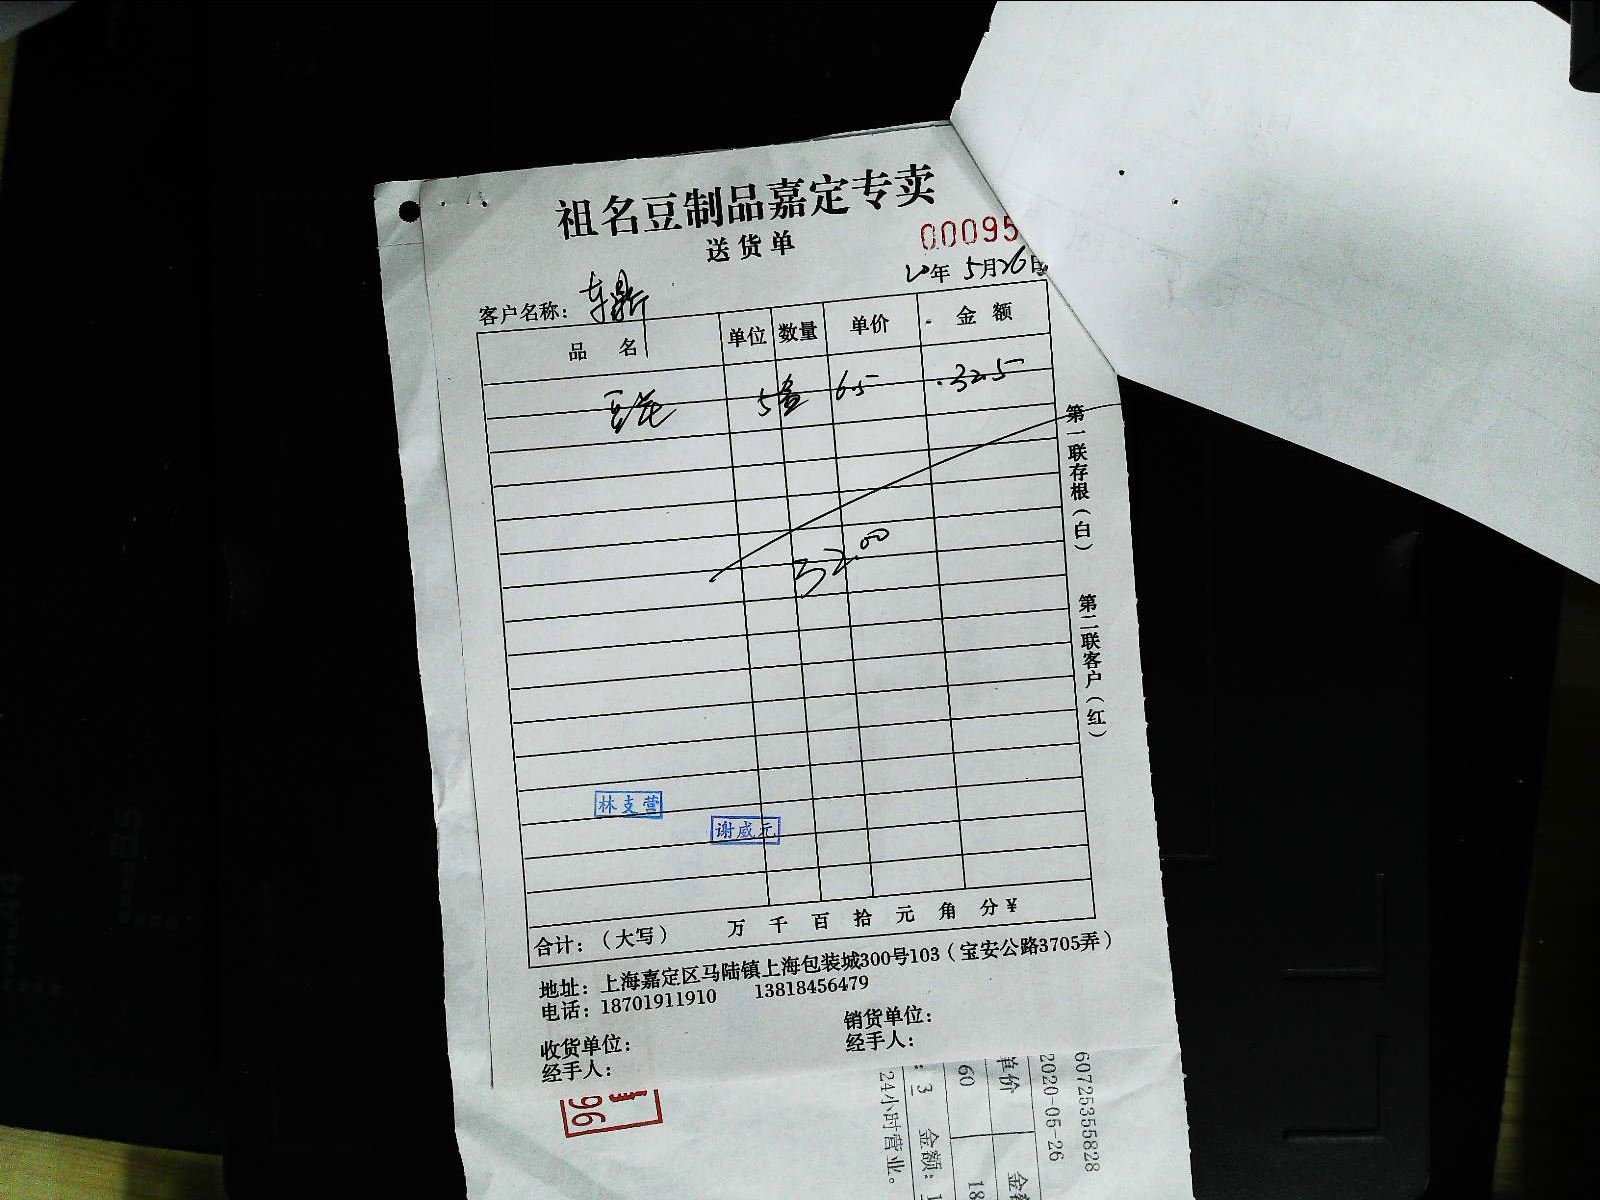 祖名豆制品嘉定专卖
送货单
00095
20年5月26日
客户名称：
品 名 单位 数量 单价 金 额
豆花 5盒 6.5 32.5
32.00
第一联存根（白）
第二联客户（红）
林支营
谢威元
合计：（大写） 万 千 百 拾 元 角 分 ¥
地址：上海嘉定区马陆镇上海包装城300号103（宝安公路3705弄）
电话：18701911910 13818456479
收货单位： 销货单位：
经手人： 经手人：
96
60725355828
2020-05-26
单价 金
60 18
: 3 金额: 1
24小时营业。